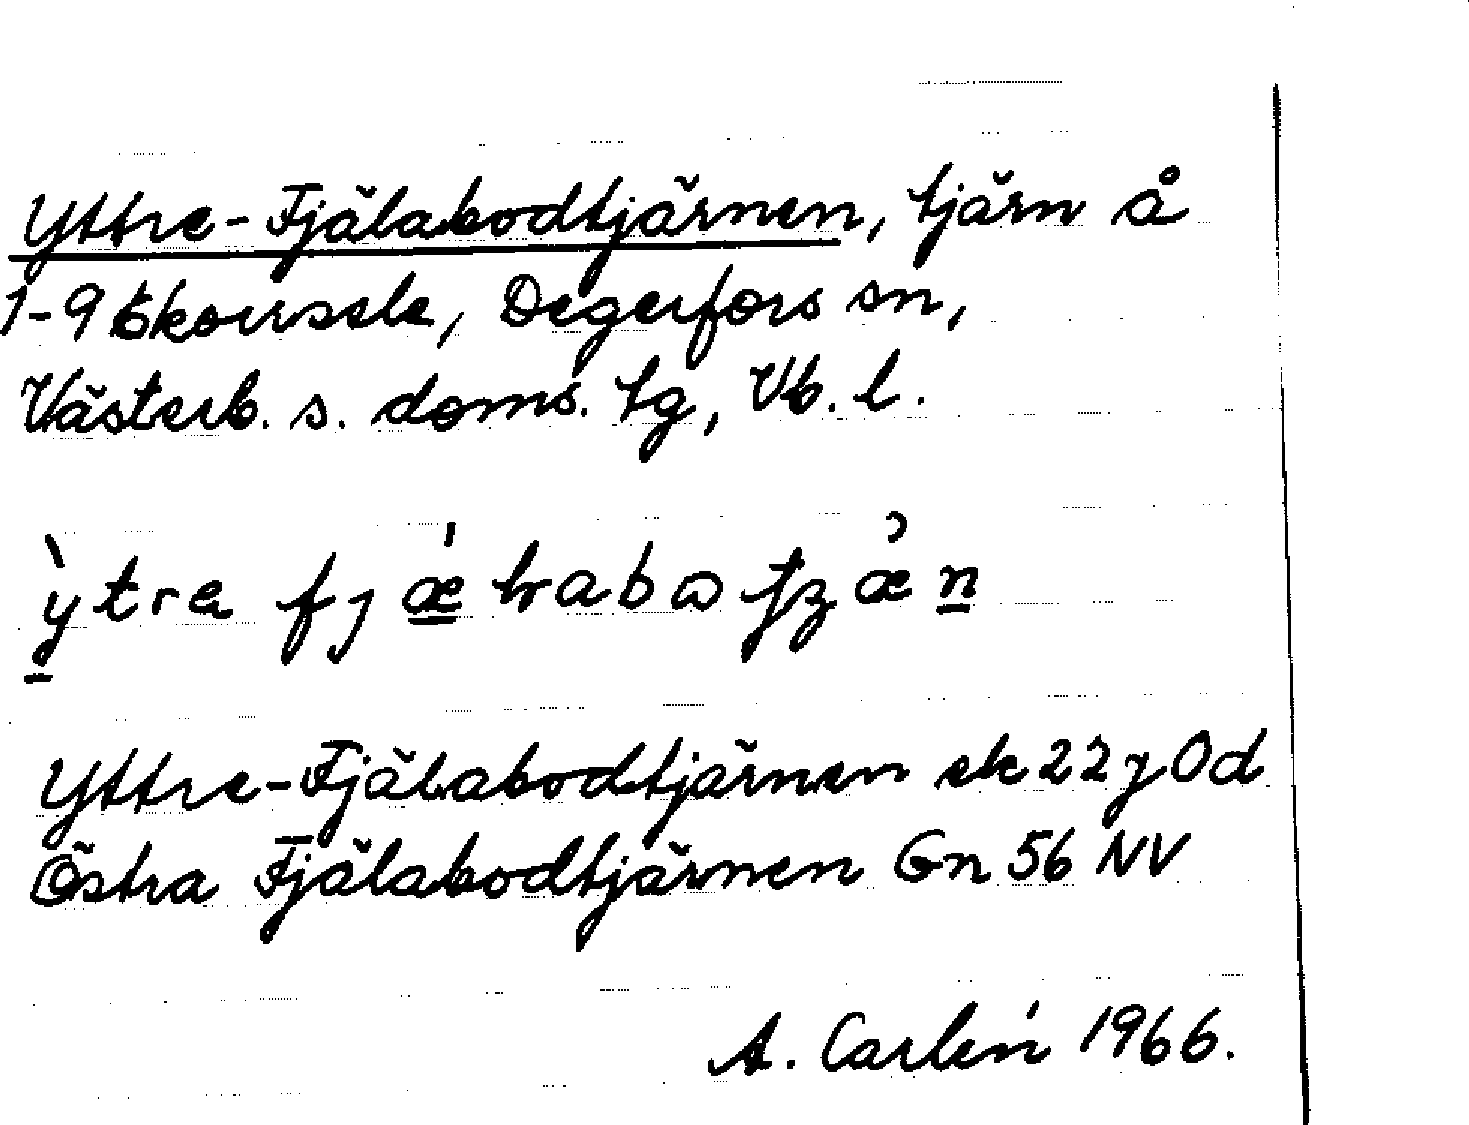 Yttre-Fjälabodtjärnen, tjärn å
1-9 Ekorrsele, Degerfors sn,
Västerb. s. doms. tg, Vb. l.
Yttre-Fjälabodtjärnen ek 22 y Od
Östra Fjälabodtjärnen Gn 56 NV
A. Carlén 1966.